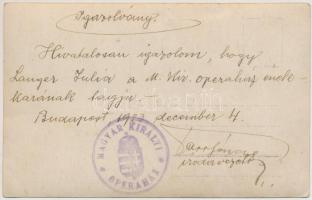 Igazolvány.
Hivatalosan igazolom, hogy
Langer Julia a M. Kir. operaház ének-
karának tagja.
Budapest 1923 december 4.
irodavezető
MAGYAR KIRÁLYI
OPERAHÁZ